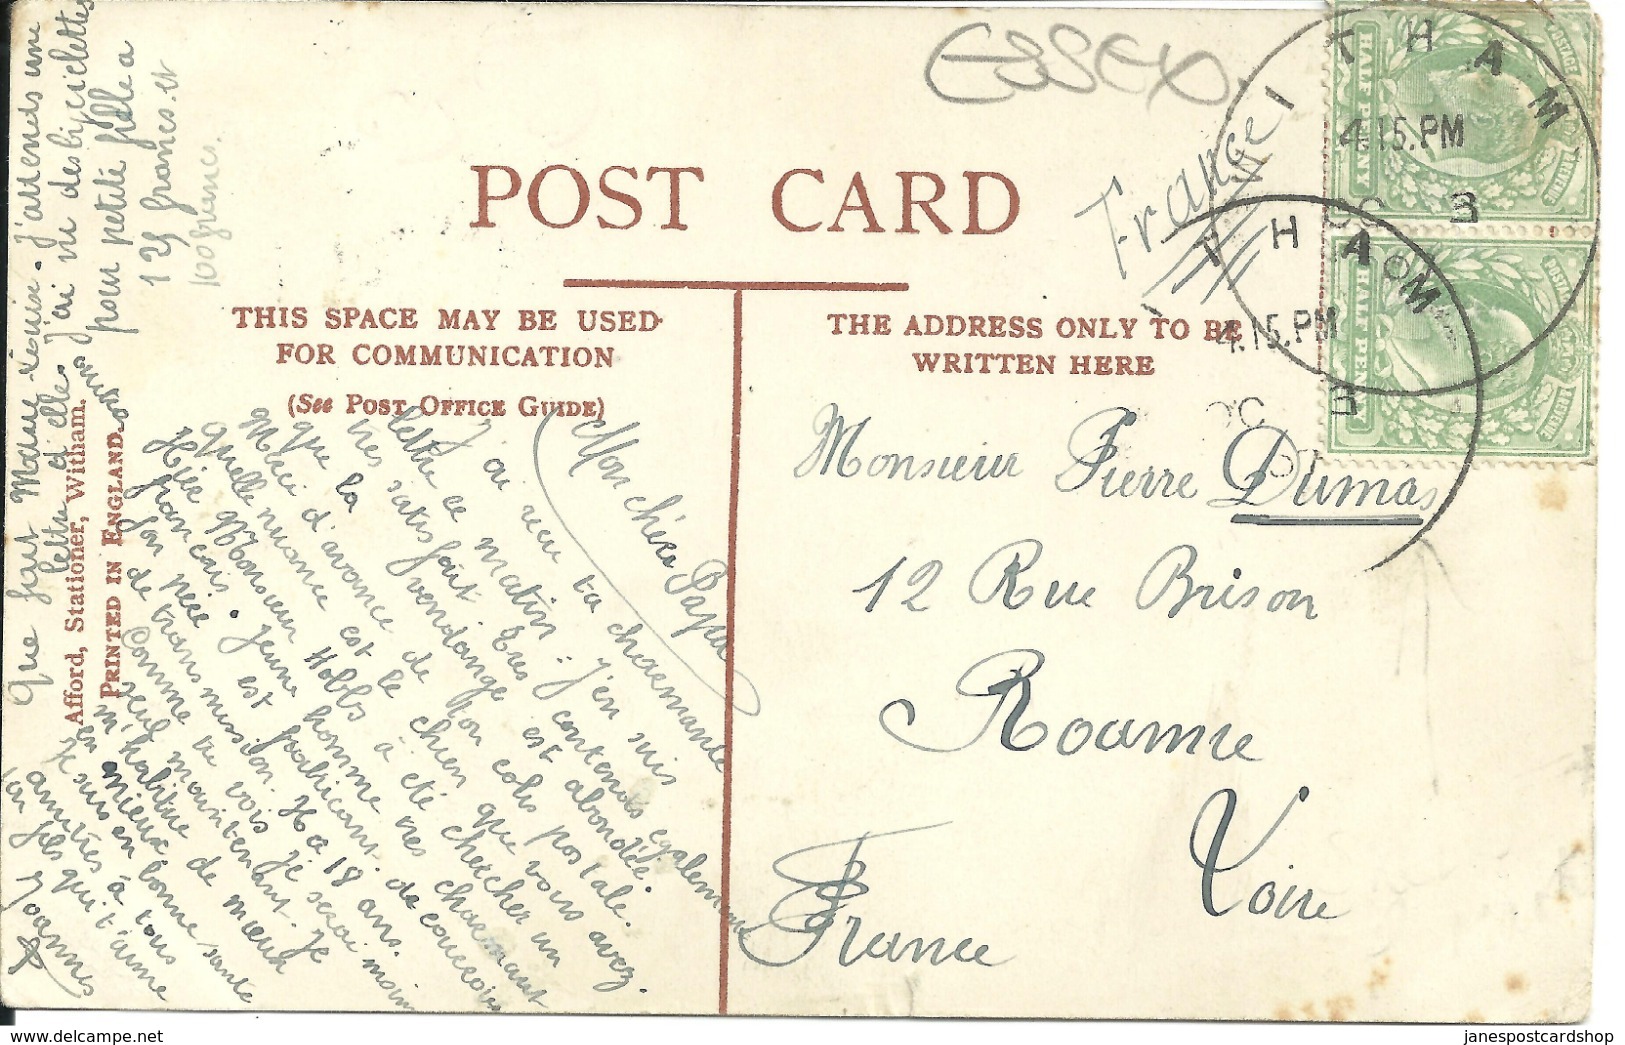 ESSEX
POST CARD
France
WITHAM
4.15.PM
OC 3
THAM
4.15.PM
OC 3
HALF PENNY
POSTAGE
HALF PENNY
POSTAGE
THIS SPACE MAY BE USED
FOR COMMUNICATION
(See POST OFFICE GUIDE)
THE ADDRESS ONLY TO BE
WRITTEN HERE
Afford, Stationer, Witham.
PRINTED IN ENGLAND
Monsieur Pierre Dumas
12 Rue Brison
Roanne
Loire
France
Mon chère Papa
J'ai reçu ta charmante
lettre ce matin : j'en suis
très satisfait et contenois également
que la vendange est abondée.
Merci d'avance de ton colis postale.
Quelle race est le chien que vous avez.
Hier Monsieur Hobbs à été chercher un
français. Jeune homme très charmant
Son père est fabricant de
de transmission. Il a 18 ans.
Comme tu vois je serai moin
seul maintenant. Je
m'habitue de mieux
en mieux
Je suis en bonne santé
amitiés à tous
ton fils qui t'aime
Joannès
Que fait Marie-Louise. J'attends une
lettre d'elle. J'ai vu des bicyclettes
pour petite fille a
125 francs et
100 francs.
janespostcardshop